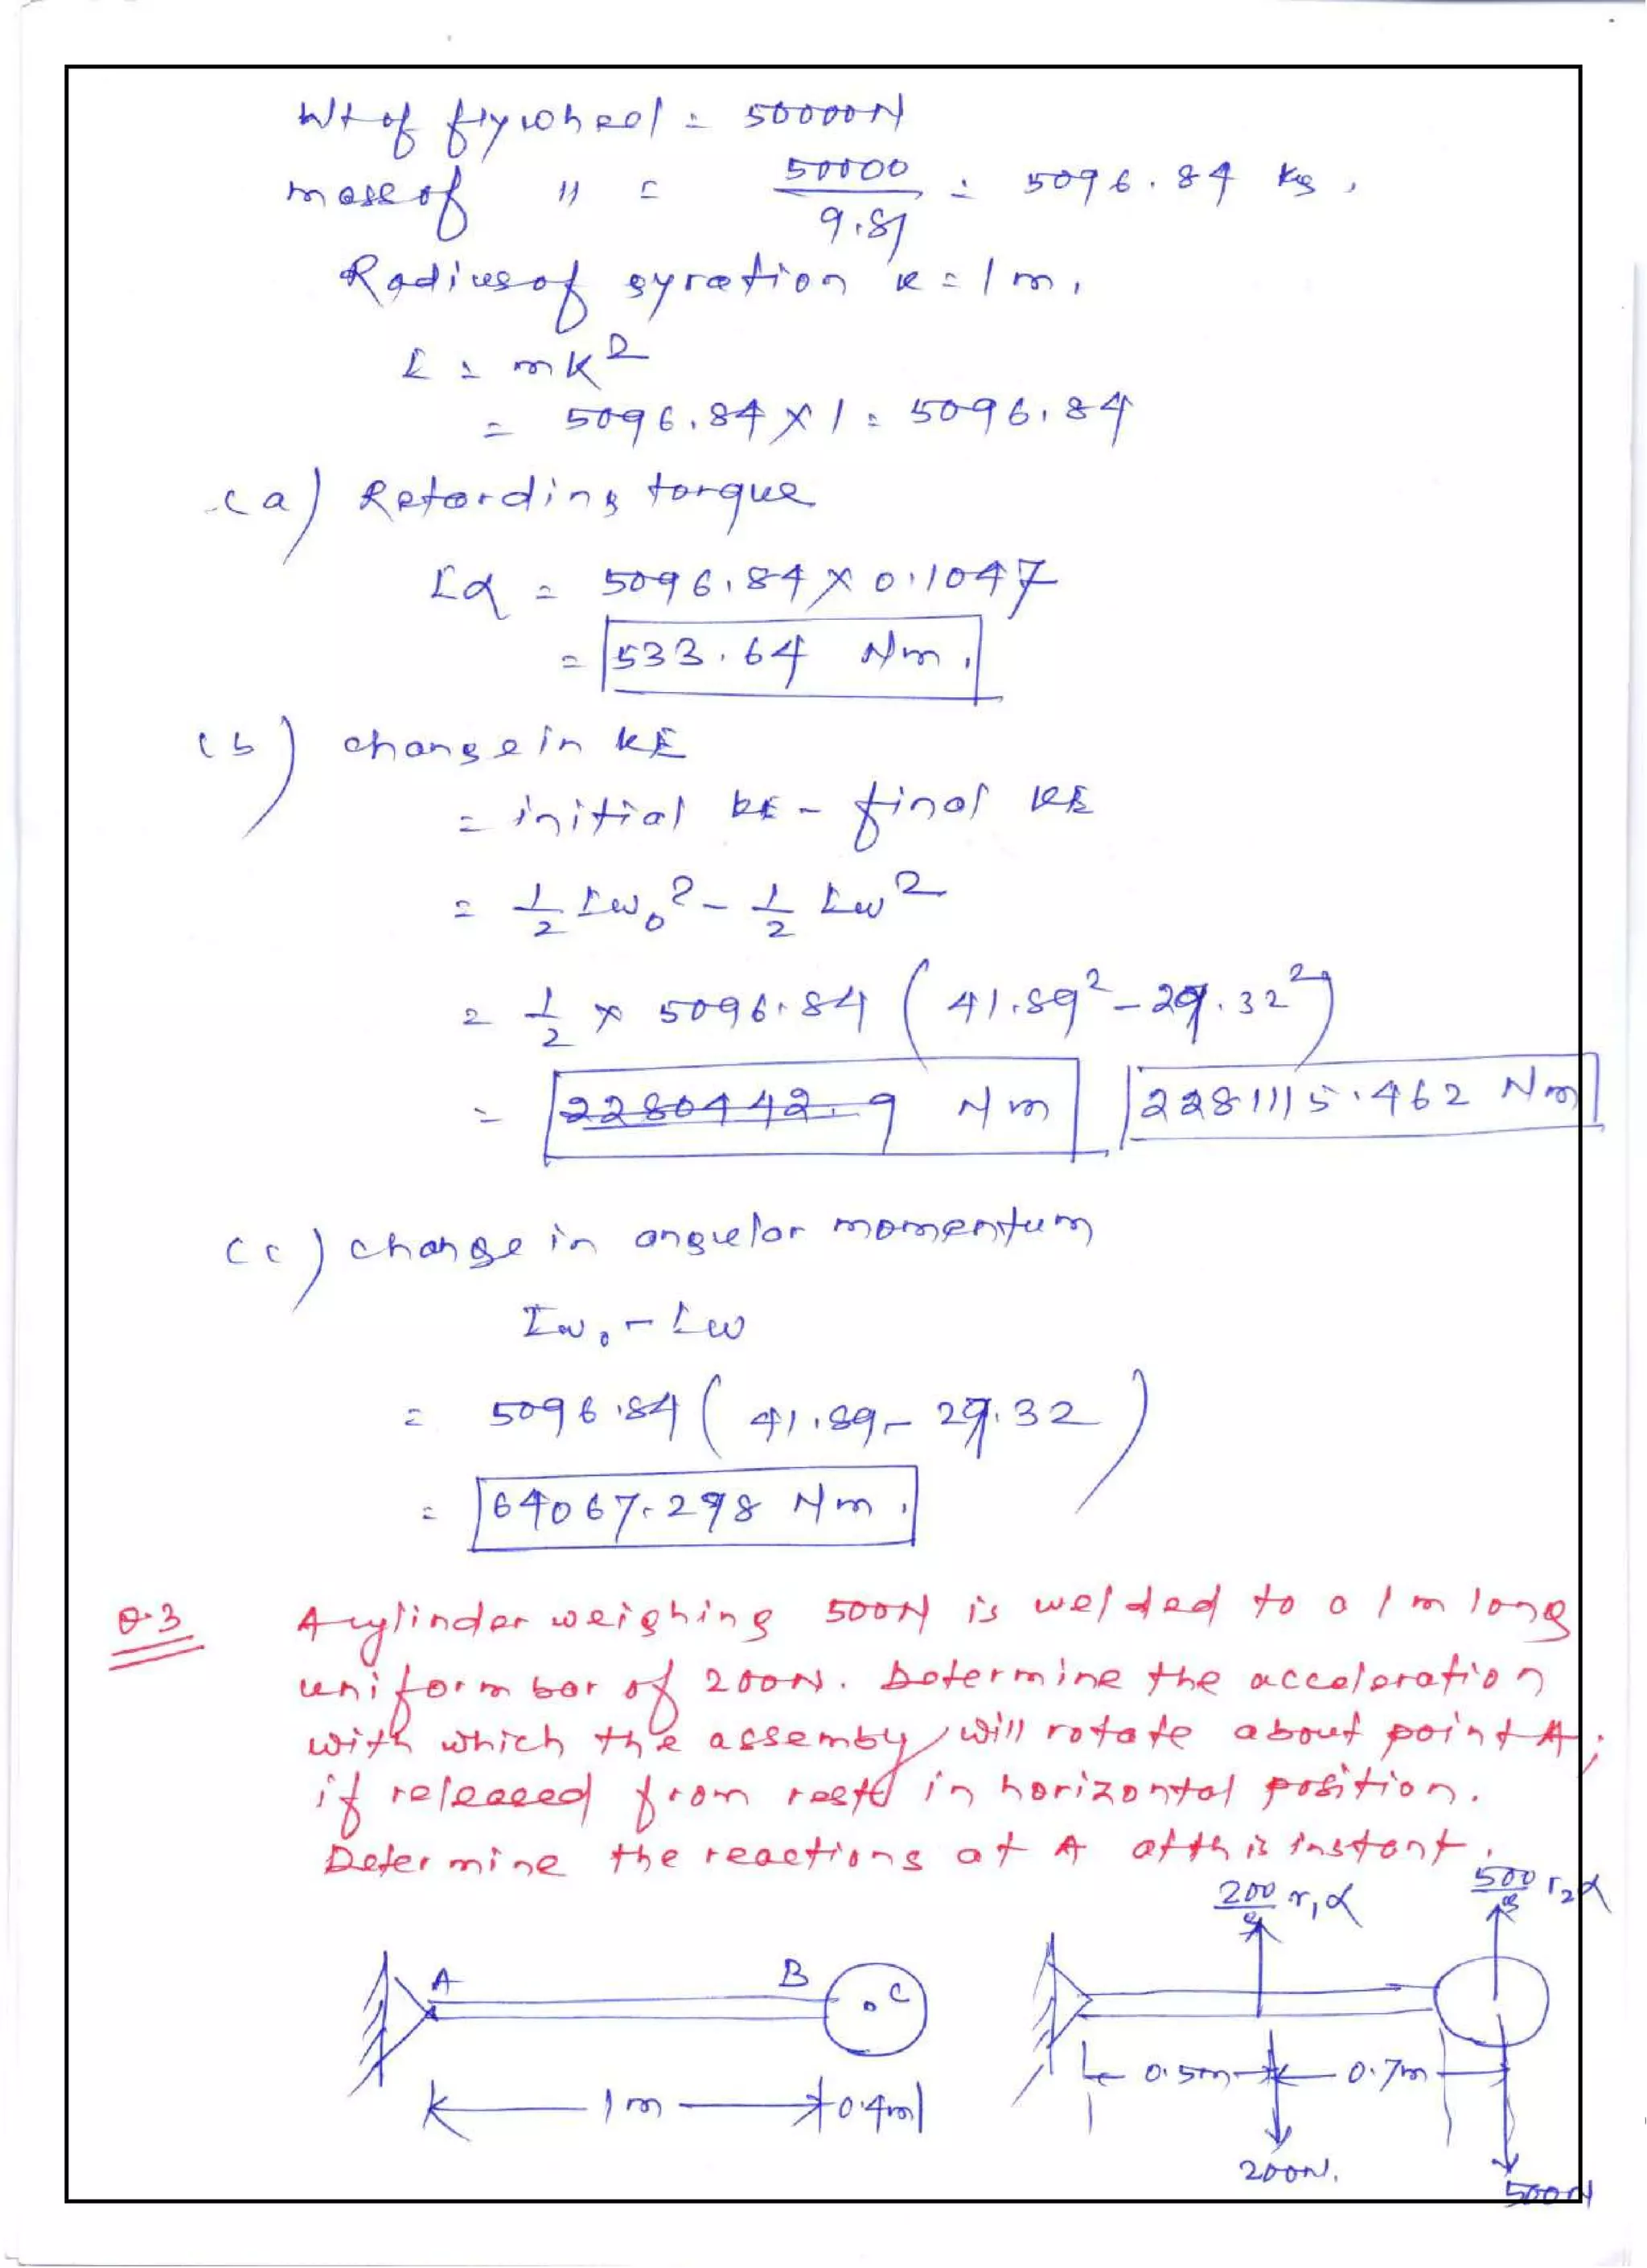 Wt of flywheel = 50000N
mass of " = 50000/9.81 = 5096.84 kg.
Radius of gyration k = 1 m.
I = mk²
= 5096.84 × 1 = 5096.84
(a) Retarding torque
Iα = 5096.84 × 0.1047
= 533.64 Nm.
(b) change in KE
= initial KE - final KE
= 1/2 Iω₀² - 1/2 Iω²
= 1/2 × 5096.84 (41.89² - 29.32²)
= 2280442.9 Nm 2281115.462 Nm
(c) change in angular momentum
Iω₀ - Iω
= 5096.84 (41.89 - 29.32)
= 64067.278 Nm.
Q.3 A cylinder weighing 500N is welded to a 1 m long
uniform bar of 200N. Determine the acceleration
with which the assemby will rotate about point A,
if released from rest in horizontal position.
Determine the reactions at A at this instant.
200/g r₁α 500/g r₂α
A B C
0.5m 0.7m
1 m 0.4m
200N. 500N